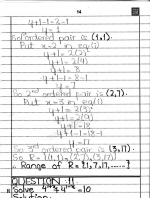 14
y+1-1=2-1
y=1
So ordered pair is (1,1).
Put x=2 in eq(i)
y+1=2(2)²
y+1=2(4)
y+1=8
y+1-1=8-1
y=7
So 2nd ordered pair is (2,7).
Put x=3 in eq(i)
y+1=2(3)²
y+1=2(9)
y+1=18
y+1-1=18-1
y=17
So 3rd ordered pair is (3,17).
So R={(1,1),(2,7),(3,17)
∴ Range of R={1,7,17,.....}
QUESTION:11
Solve 4 =10
Solution: